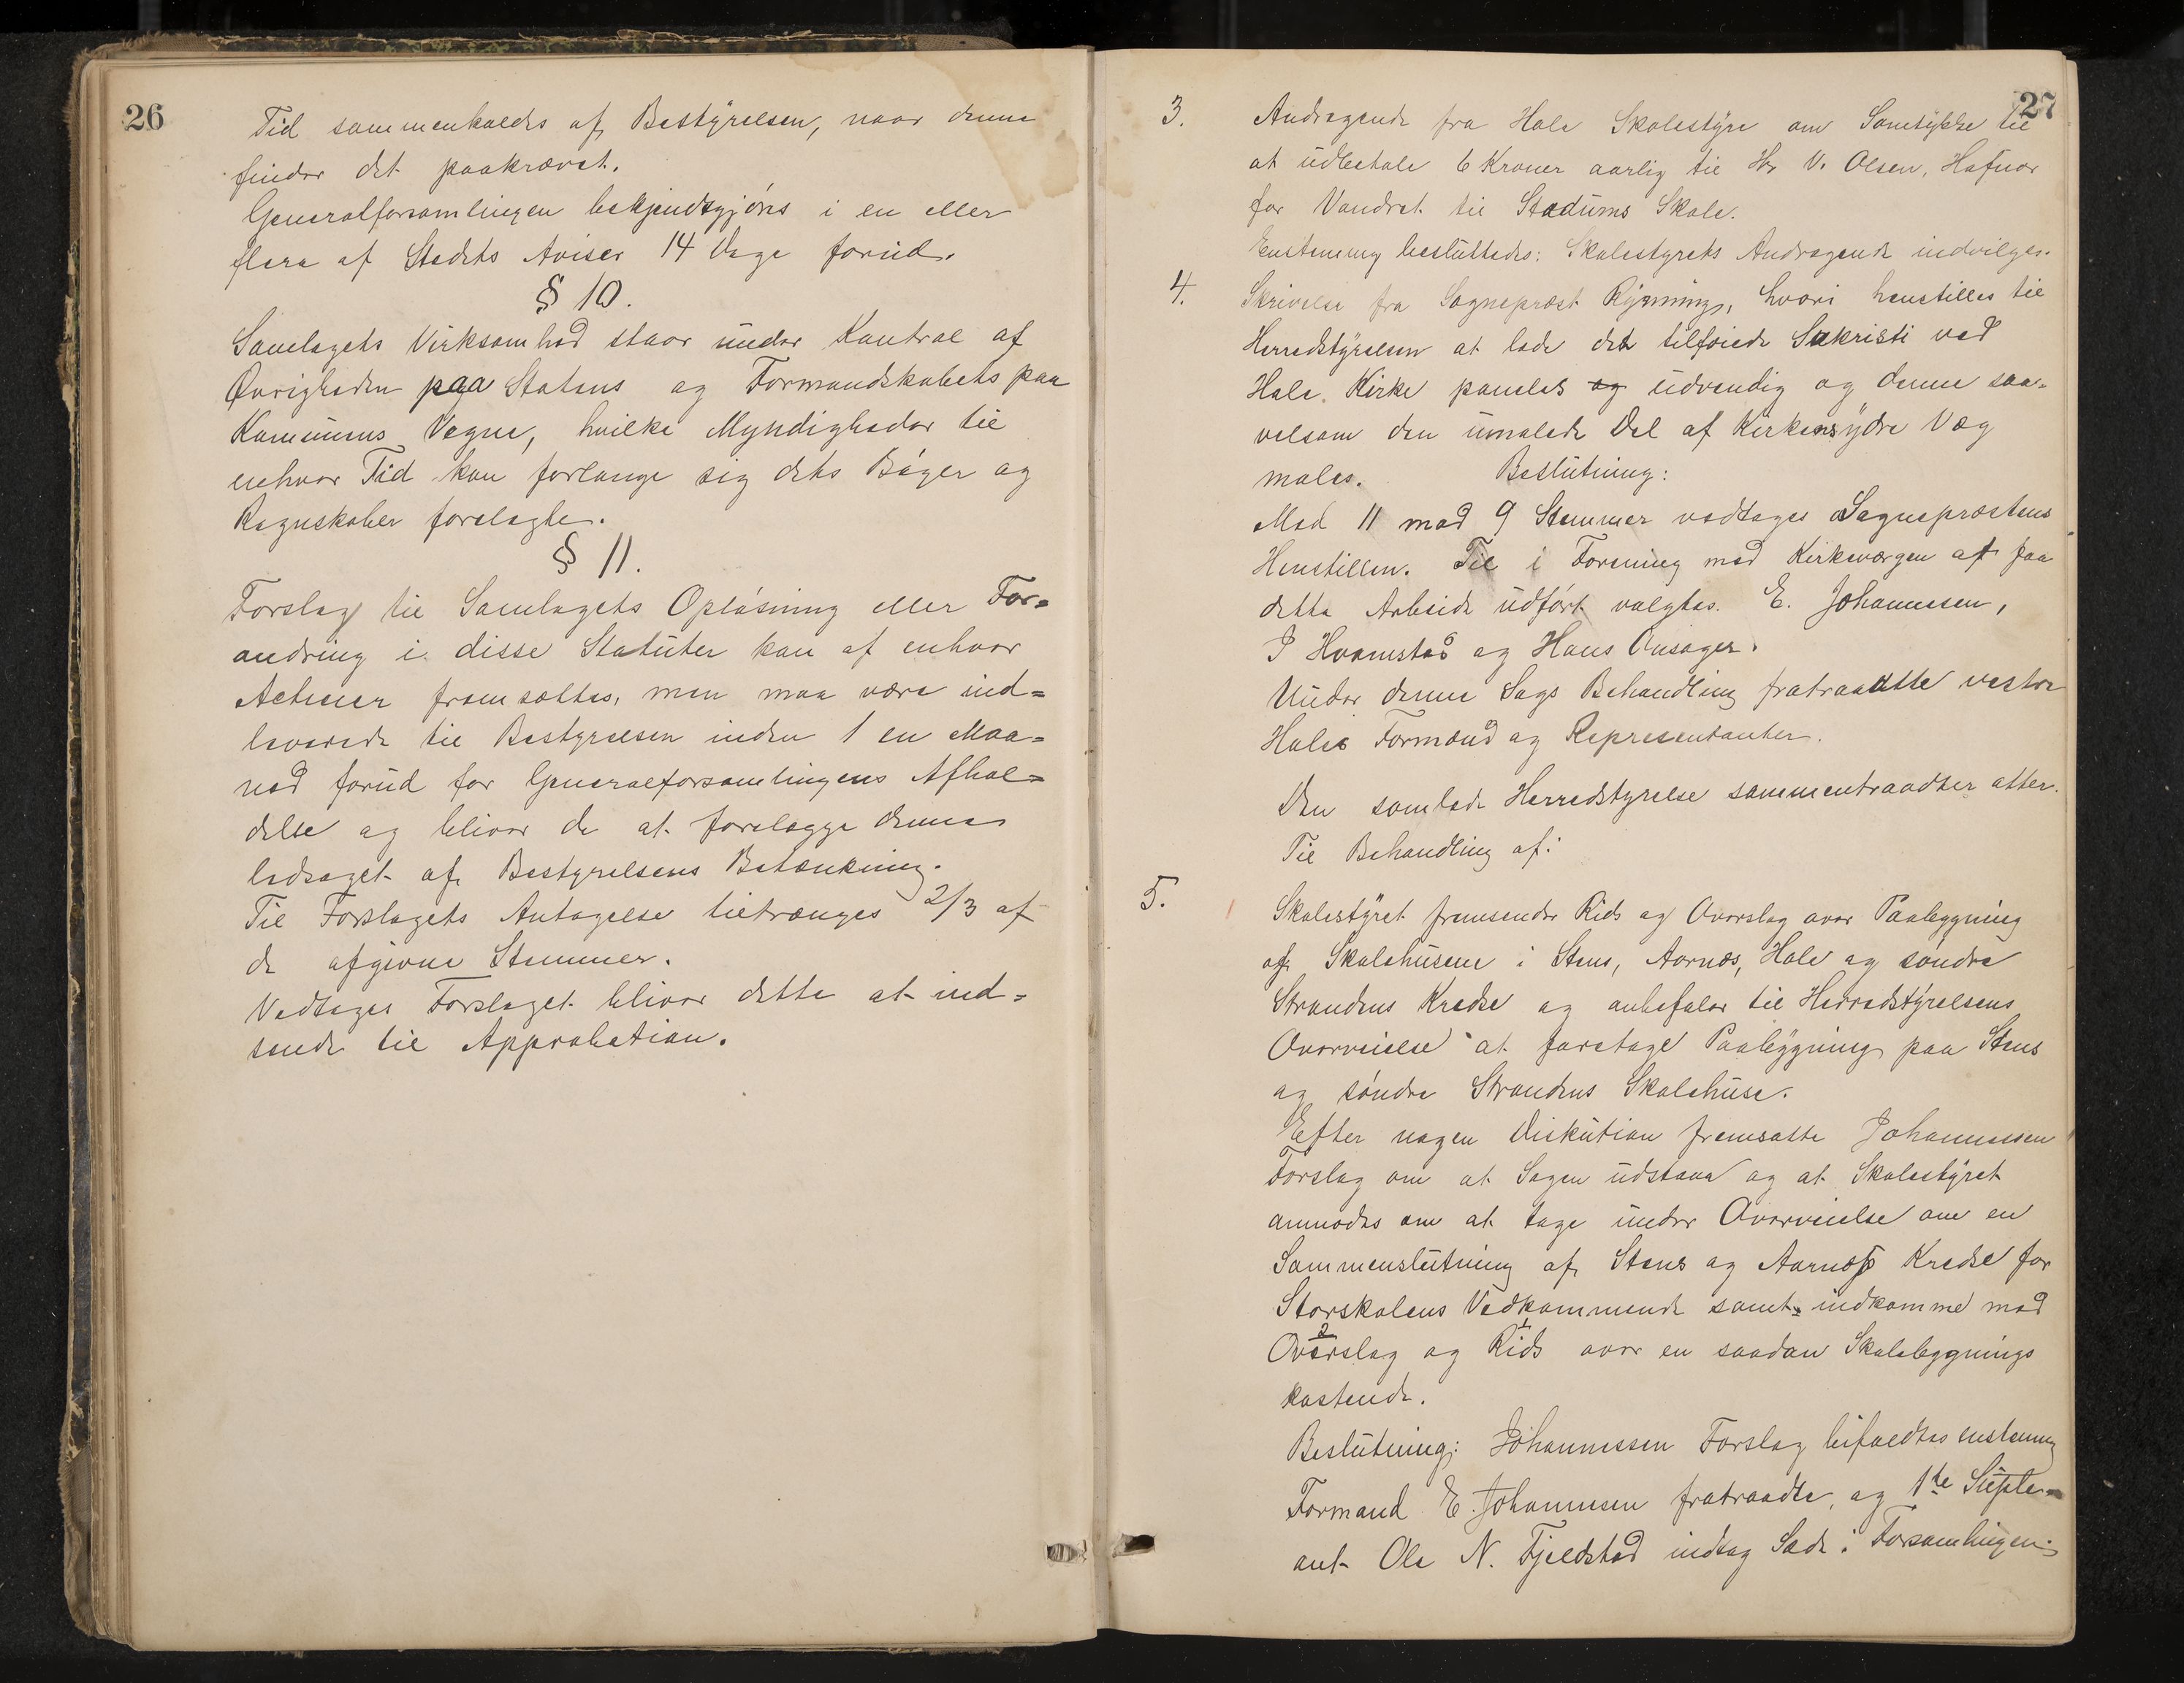 26
Tid sammenkaldes af Bestyrelsen, naar denne
finder det paakrævet.
Generalforsamlingen bekjendtgjøres i en eller
flere af Stedets Aviser 14 Dage forud.
§ 10.
Samlagets Virksomhed staar under Kontrol af
Øvrigheden paa Statens og Formandskabets paa
Kommunens Vegne, hvilke Myndigheder til
enhver Tid kan forlange sig dets Bøger og
Regnskaber forelagte.
§ 11.
Forslag til Samlagets Opløsning eller For=
andring i disse Statuter kan af enhver
Actieeier fremsættes, men maa være ind=
leverede til Bestyrelsen inden 1 en Maa=
ned forud for Generalforsamlingens Afhol=
delse og bliver de at forelægge denne
ledsaget af Bestyrelsens Betænkning.
Til Forslagets Antagelse tiltrænges 2/3 af
de afgivne Stemmer.
Vedtages Forslaget bliver dette at ind=
sende til Approbation.
27
3. Andragende fra Hole Skolestyre om Samtykke til
at udbetale 6 Kroner aarlig til Hr V. Olsen, Hafnor
for Vandret til Stadums Skole.
Enstemmig besluttedes: Skolestyrets Andragende indvilges.
4. Skrivelse fra Sogneprest Rynning, hvori henstilles til
Herredstyrelsen at lade det tilføiede Sakristi ved
Hole Kirke paneles og udvendig og denne saa=
velsom den umalede Del af Kirkens ydre Væg
males. Beslutning:
Med 11 mod 9 Stemmer vedtages Sogneprestens
Henstillen. Til i Forening med Kirkeværgen at faa
dette Arbeide udført valgtes E. Johannessen,
J Hvamstad og Hans Onsager.
Under denne Sags Behandling fratraadte vestre
Holes Formænd og Representanter.
Den samlede Herredstyrelse sammentraadter atter.
Til Behandling af:
5. Skolestyret fremsender Rids og Overslag over Paabygning
af Skolehusene i Stens, Aarnæs, Hole og søndre
Strandens Kredse og anbefaler til Herredstyrelsens
Overveielse at foretage Paabygning paa Stens
og søndre Strandens Skolehuse.
Efter nogen Diskution fremsatte Johannessen
Forslag om at Sagen udstaar og at Skolestyret
anmodes om at tage under Overveielse om en
Sammenslutning af Stens og Aarnæs Kredse for
Storskolens Vedkommende samt indkomme med
2 1
Overslag og Rids over en saadan Skolebygnings
kostende.
Beslutning: Johannessen Forslag bifaldtes enstemmig
Formand E. Johannessen fratraadte, og 1te Suple=
ant Ole N. Fjeldstad indtog Sæde i Forsamlingen.